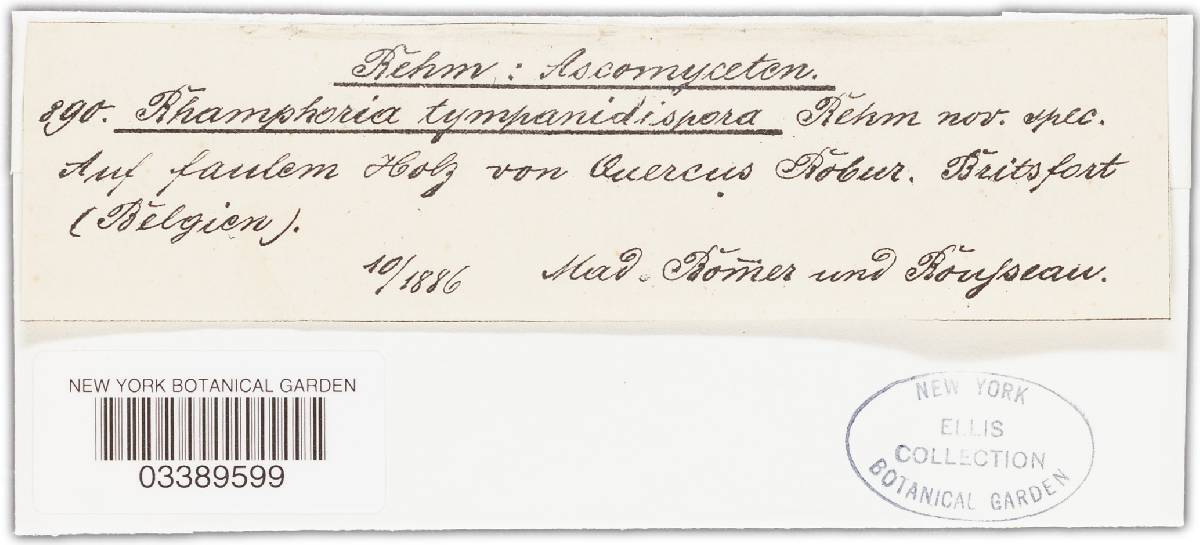 Rehm : Ascomyceten.
890. Rhamphoria tympanidispora Rehm nov. spec.
Auf faulem Holz von Quercus Robur. Britsfort
(Belgien).
10/1886 Mad. Rom̅er und Rousseau.
NEW YORK BOTANICAL GARDEN
03389599
NEW YORK
ELLIS
COLLECTION
BOTANICAL GARDEN